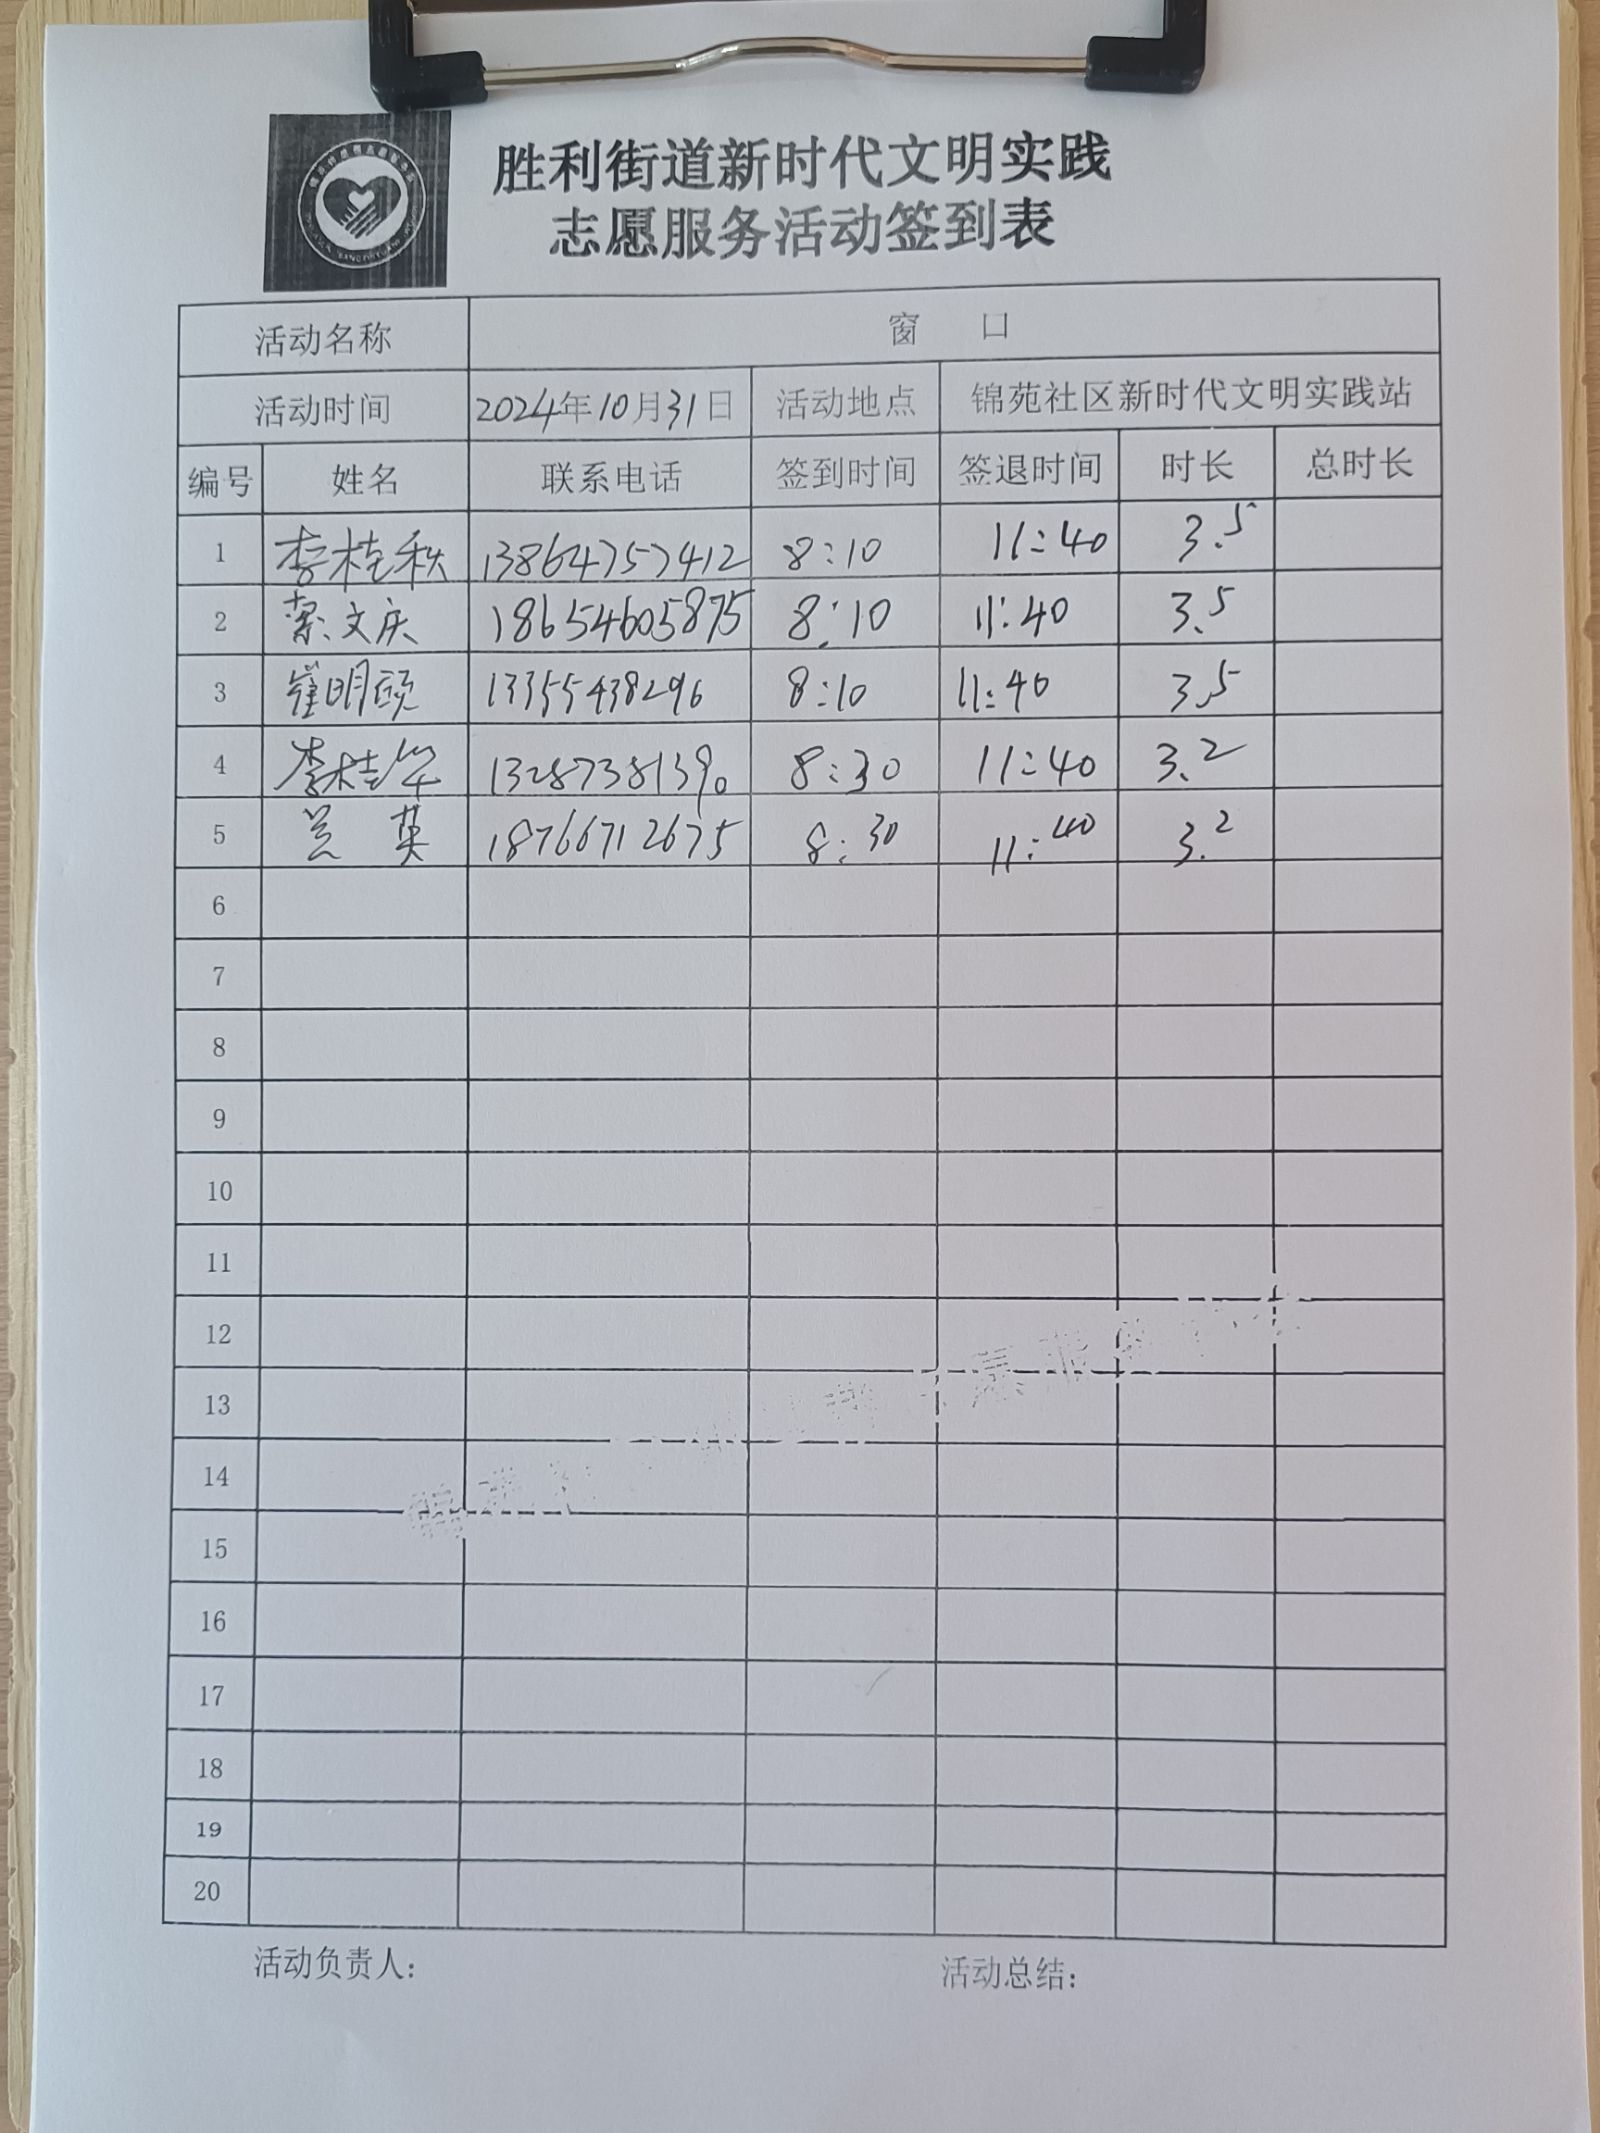 胜利街道新时代文明实践
志愿服务活动签到表
活动名称 窗 口
活动时间 2024年10月31日 活动地点 锦苑社区新时代文明实践站
编号 姓名 联系电话 签到时间 签退时间 时长 总时长
1 李桂秋 13864757412 8:10 11:40 3.5
2 綦文庆 18654605875 8:10 11:40 3.5
3 崔明硕 13355438296 8:10 11:40 3.5
4 李桂华 13287381390 8:30 11:40 3.2
5 英 18766712675 8:30 11:40 3.2
6
7
8
9
10
11
12
13
14
15
16
17
18
19
20
活动负责人: 活动总结: